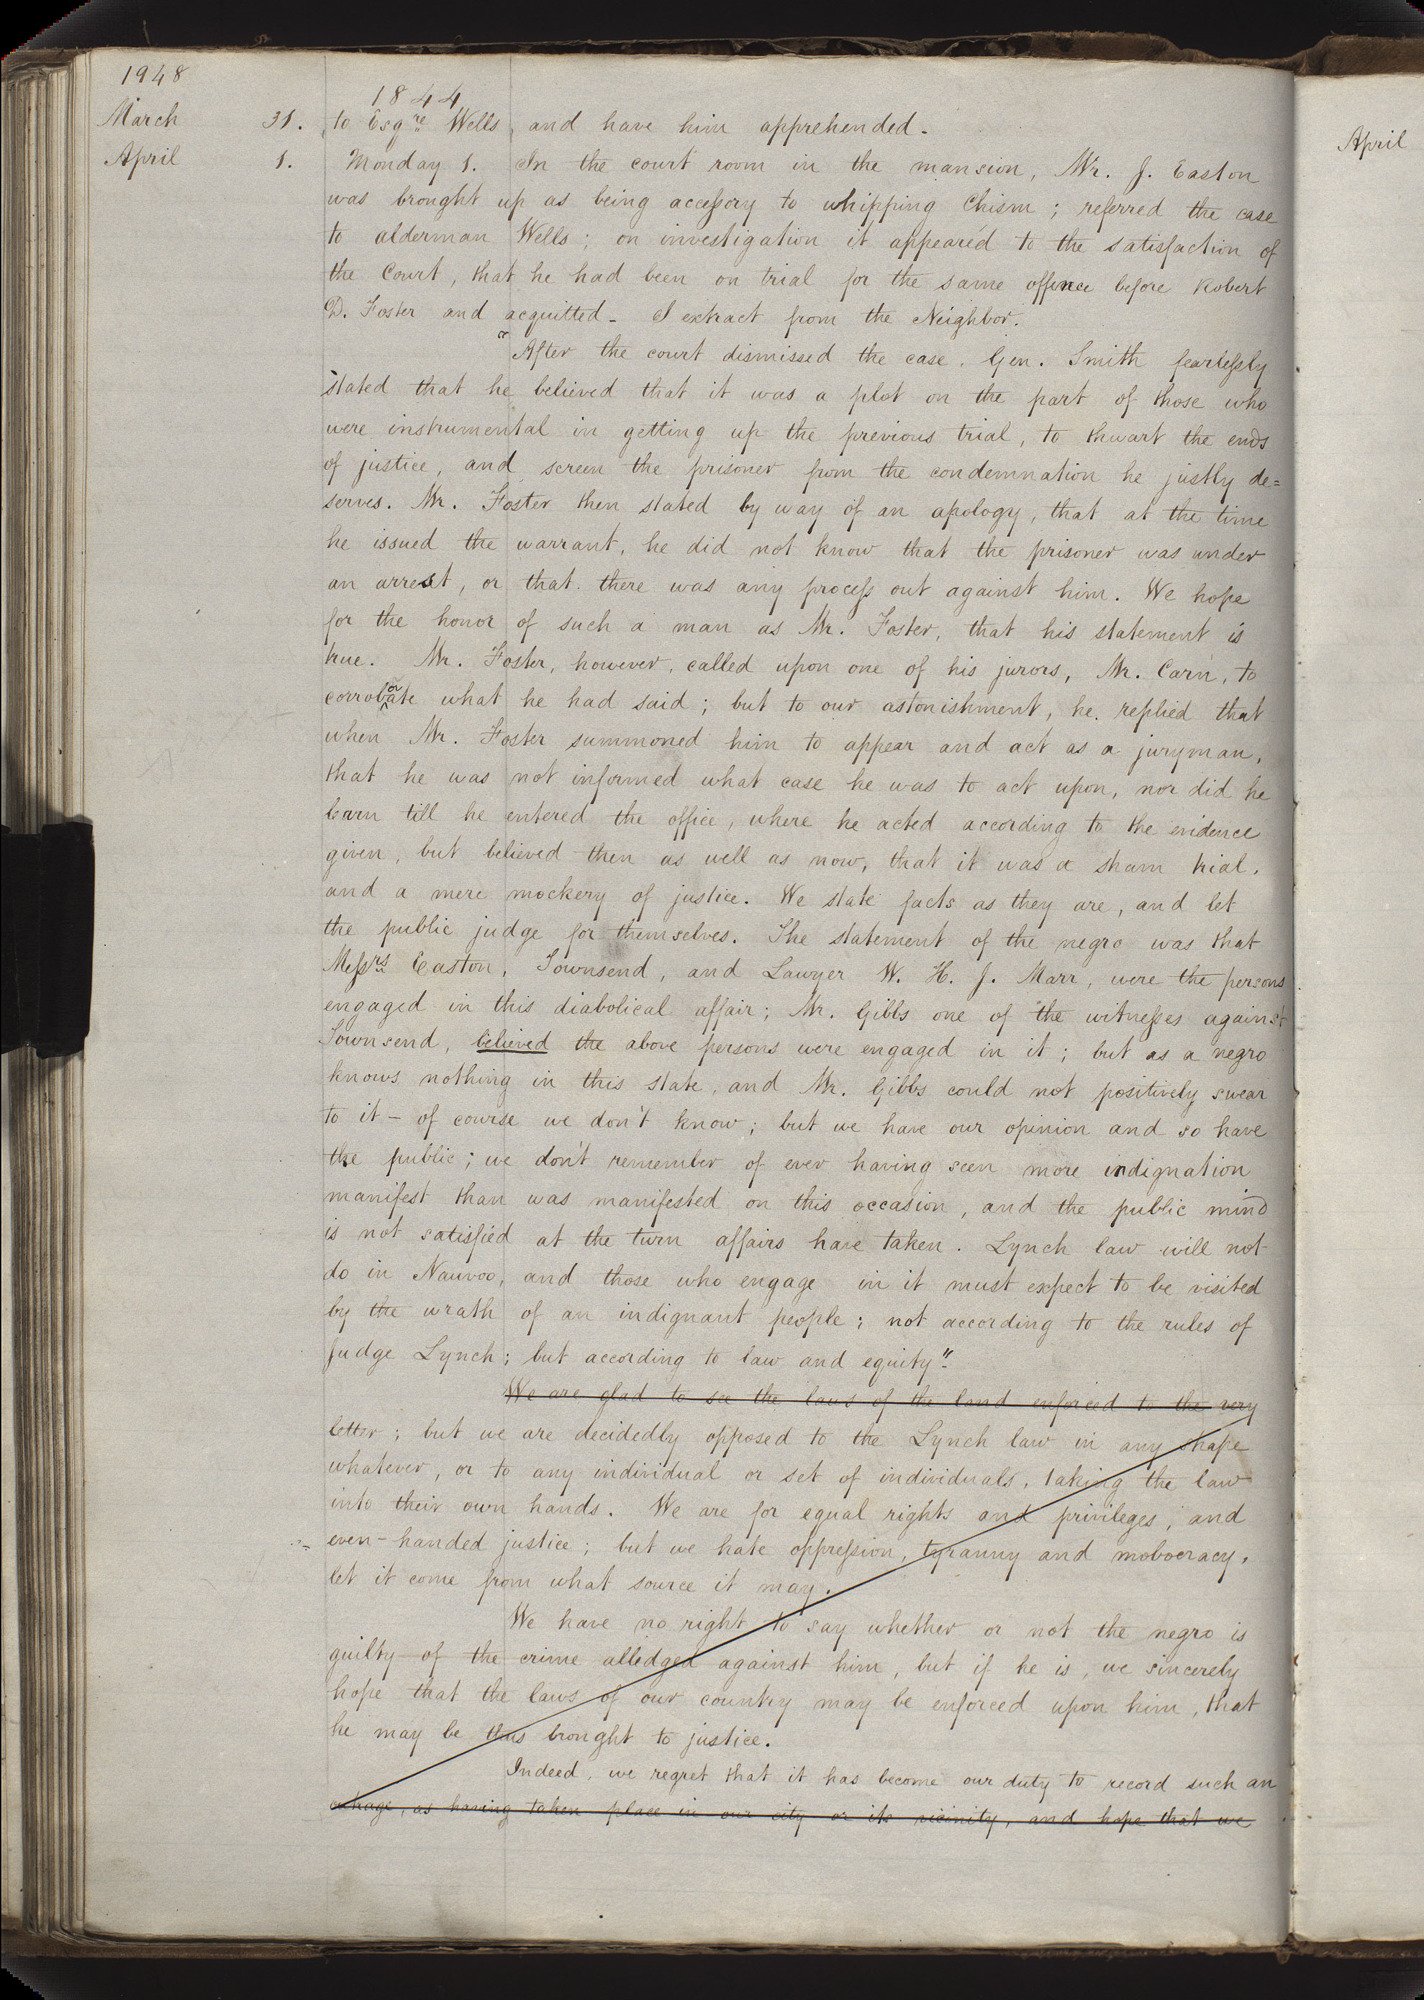 1948
1844
March 31. to Esqre Wells, and have him apprehended.
April 1. Monday 1. In the court room in the mansion, Mr. J. Easton
was brought up as being accessory to whipping Chism; referred the case
to alderman Wells; on investigation it appeared to the satisfaction of
the Court, that he had been on trial for the same offence before Robert
D. Foster and acquitted. I extract from the Neighbor.
"After the court dismissed the case, Gen. Smith fearlessly
stated that he believed that it was a plot on the part of those who
were instrumental in getting up the previous trial, to thwart the ends
of justice, and screen the prisoner from the condemnation he justly de=
serves. Mr. Foster then stated by way of an apology, that at the time
he issued the warrant, he did not know that the prisoner was under
an arrest, or that there was any process out against him. We hope
for the honor of such a man as Mr. Foster, that his statement is
true. Mr. Foster, however, called upon one of his jurors, Mr. Carn, to
corroborate what he had said; but to our astonishment, he replied that
when Mr. Foster summoned him to appear and act as a juryman,
that he was not informed what case he was to act upon, nor did he
learn till he entered the office, where he acted according to the evidence
given, but believed then as well as now, that it was a sham trial,
and a mere mockery of justice. We state facts as they are, and let
the public judge for themselves. The statement of the negro was that
Messrs Easton, Townsend, and Lawyer W. H. J. Marr, were the persons
engaged in this diabolical affair; Mr. Gibbs one of the witnesses against
Townsend, believed the above persons were engaged in it; but as a negro
knows nothing in this state, and Mr. Gibbs could not positively swear
to it – of course we don't know; but we have our opinion and so have
the public; we don't remember of ever having seen more indignation
manifest than was manifested on this occasion, and the public mind
is not satisfied at the turn affairs have taken. Lynch law will not
do in Nauvoo, and those who engage in it must expect to be visited
by the wrath of an indignant people; not according to the rules of
Judge Lynch; but according to law and equity".
We are glad to see the laws of the land enforced to the very
letter; but we are decidedly opposed to the Lynch law in any shape
whatever, or to any individual or set of individuals, taking the law
into their own hands. We are for equal rights and privileges, and
even-handed justice; but we hate oppression, tyranny and mobocracy,
let it come from what source it may.
We have no right to say whether or not the negro is
guilty of the crime alledged against him, but if he is, we sincerely
hope that the laws of our country may be enforced upon him, that
he may be thus brought to justice.
Indeed, we regret that it has become our duty to record such an
outrage, as having taken place in our city or its vicinity, and hope that we
April